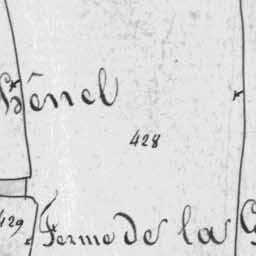 Bênel
428
429
Ferme de la